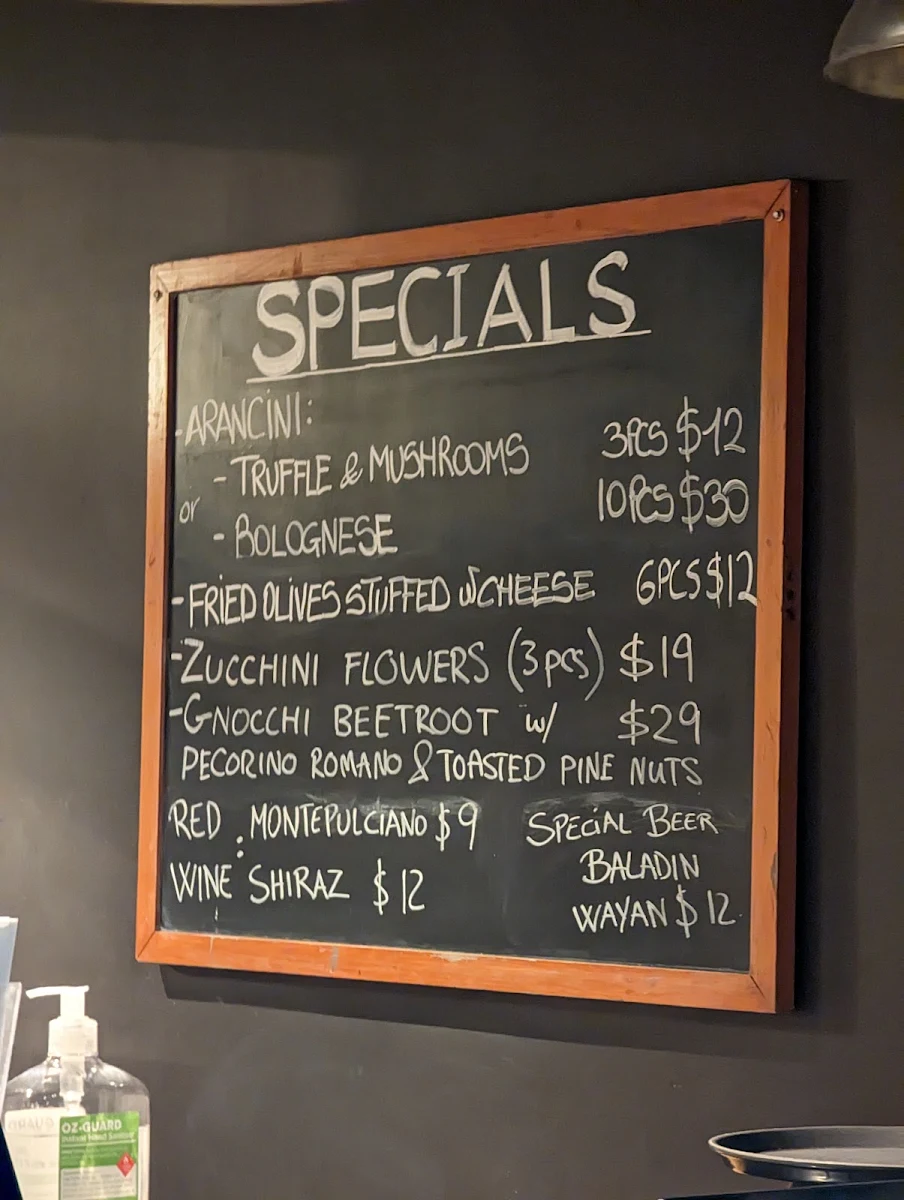 SPECIALS
-ARANCINI:
- TRUFFLE & MUSHROOMS 3PCS $12
or 10PCS $30
- BOLOGNESE
- FRIED OLIVES STUFFED w/ CHEESE 6PCS $12
- ZUCCHINI FLOWERS (3pcs) $19
- GNOCCHI BEETROOT w/ $29
PECORINO ROMANO & TOASTED PINE NUTS
RED : MONTEPULCIANO $9
WINE SHIRAZ $12
SPECIAL BEER
BALADIN
WAYAN $12
OZ-GUARD
Instant Hand Sanitiser